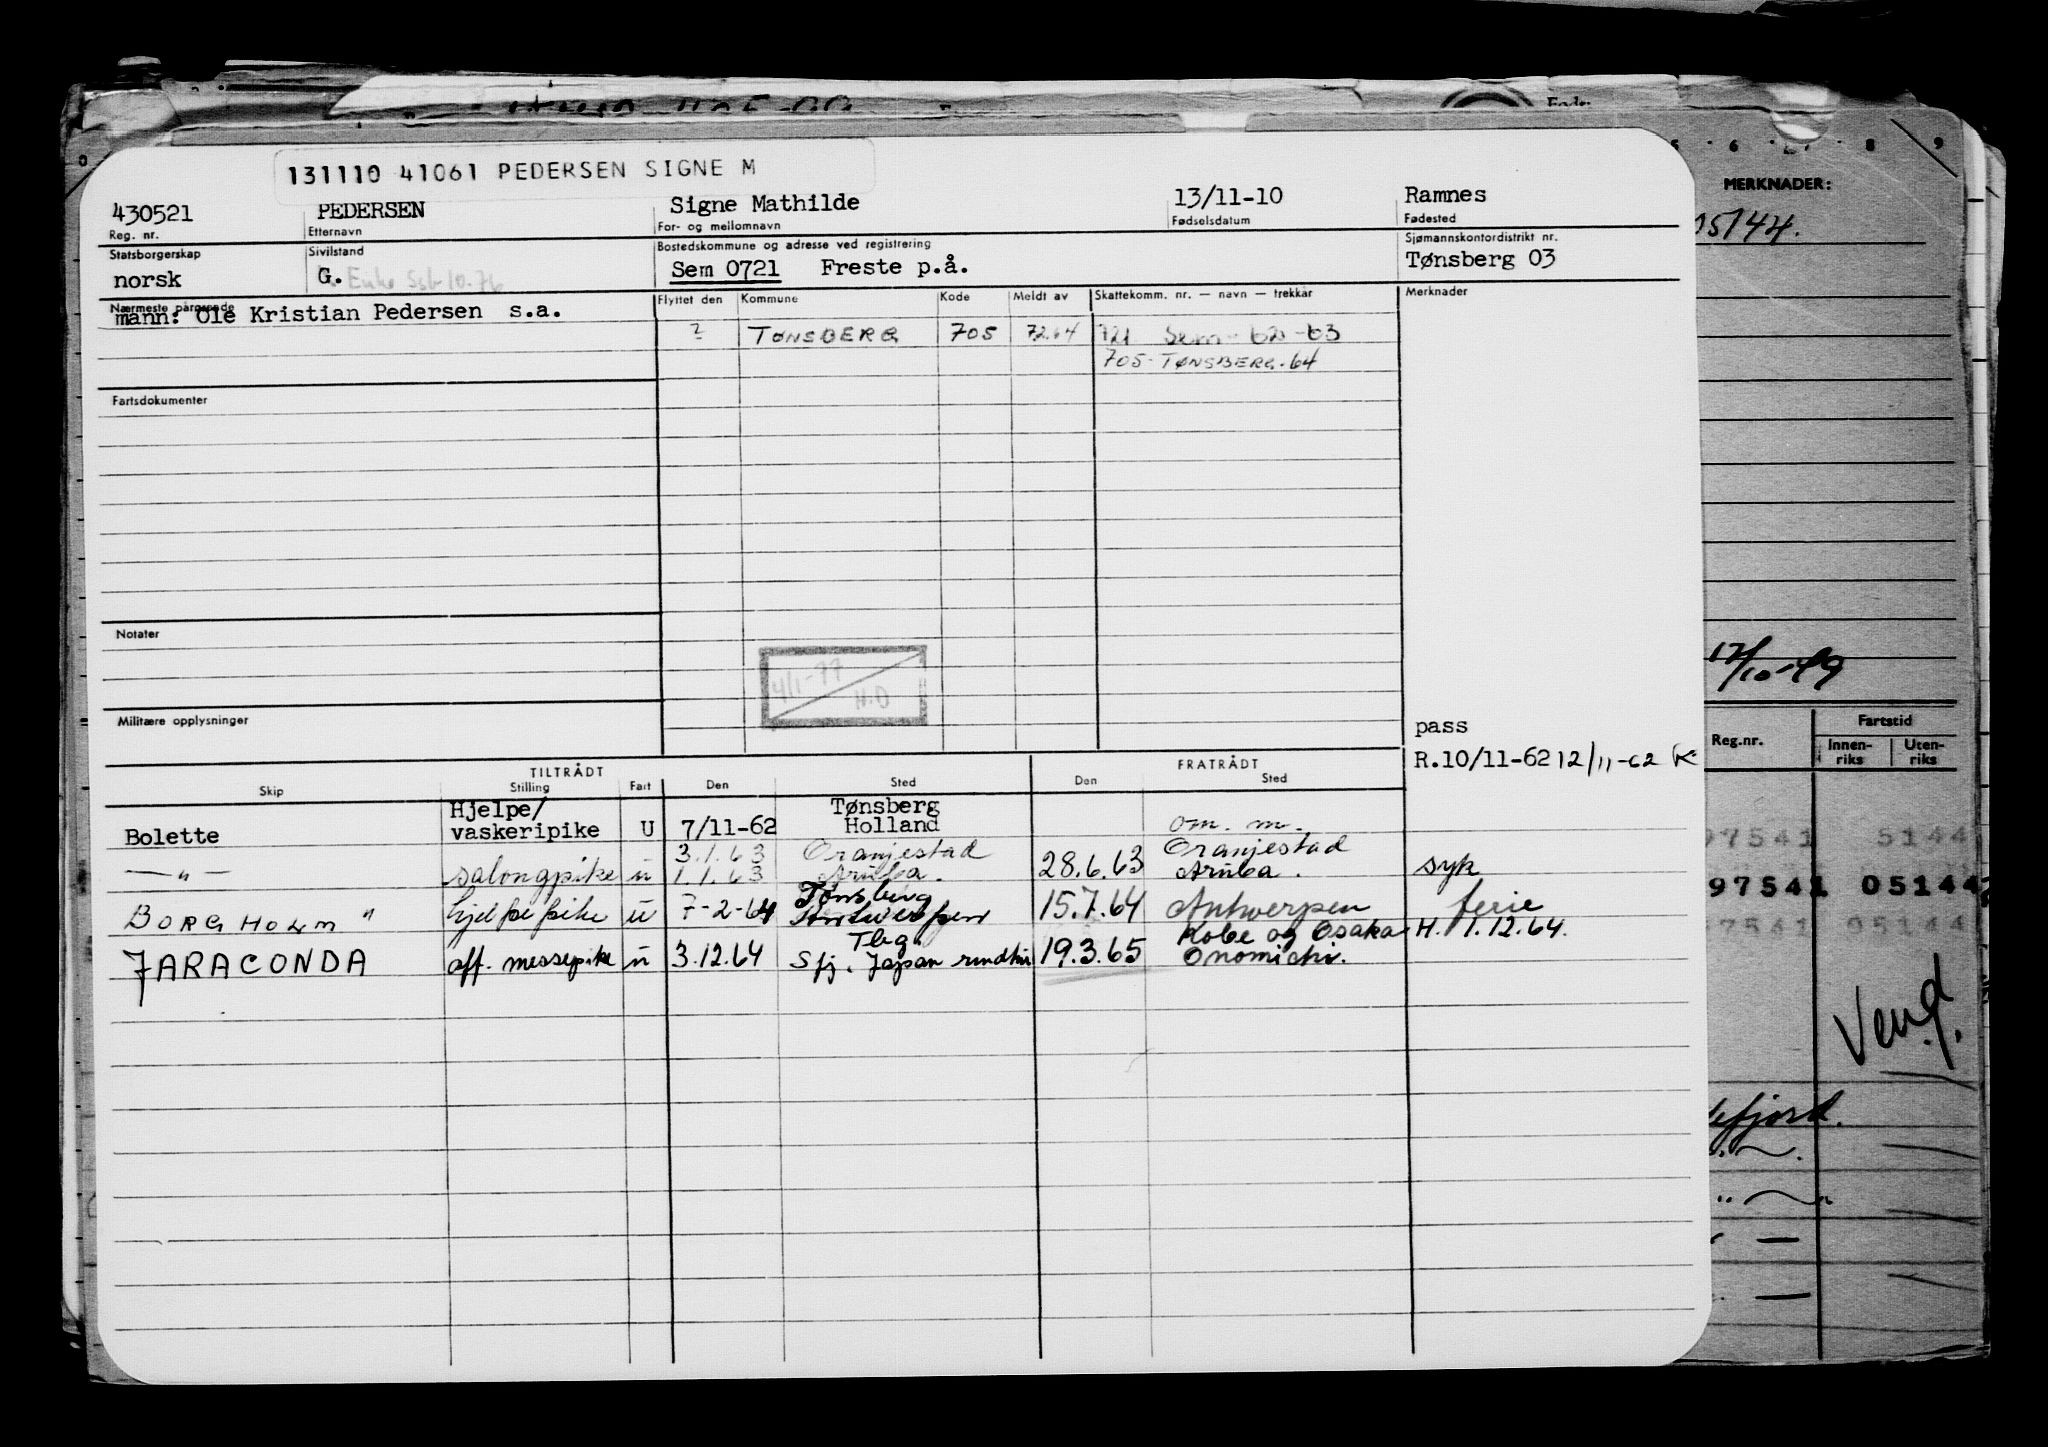 131110 41061 PEDERSEN SIGNE M
430521 PEDERSEN Signe Mathilde 13/11-10 Ramnes
Reg. nr. Etternavn For- og mellomnavn Fødselsdatum Fødested
Statsborgerskap Sivilstand Bostedskommune og adresse ved registrering Sjømannskontordistrikt nr.
norsk G. Enke Ssb-10.76 Sem 0721 Freste p.å. Tønsberg 03
Nærmeste pårørende Flyttet den Kommune Kode Meldt av Skattekomm. nr. — navn — trekkår Merknader
mann: Ole Kristian Pedersen s.a.
? TØNSBERG 705 7264 721 Sem - 62-63
705- TØNSBERG.64
Fartsdokumenter
Notater
4/1-77
H.O
Militære opplysninger
pass
R.10/11-62 12/11-62 K
TILTRÅDT FRATRÅDT
Skip Stilling Fart Den Sted Den Sted
Bolette Hjelpe/ vaskeripike U 7/11-62 Tønsberg Holland om. m.
— " — salongpike u 3.1.63 1.1.63 Oranjestad Aruba. 28.6.63 Oranjestad Aruba. syk
BORGHOLM " hjelpepike u 7-2-64 Tønsberg Antwerpen 15.7.64 Antwerpen ferie
JARACONDA off. messepike u 3.12.64 Tbg. Sfj. Japan 19.3.65 Kobe og Osaka Onomichi. H. 1.12.64.
6 8 9
MERKNADER:
05144.
17/10-49
Reg.nr. Fartstid
Innen-riks Uten-riks
97541 5144
97541 05144
97541 05144
Vend.
efjord.